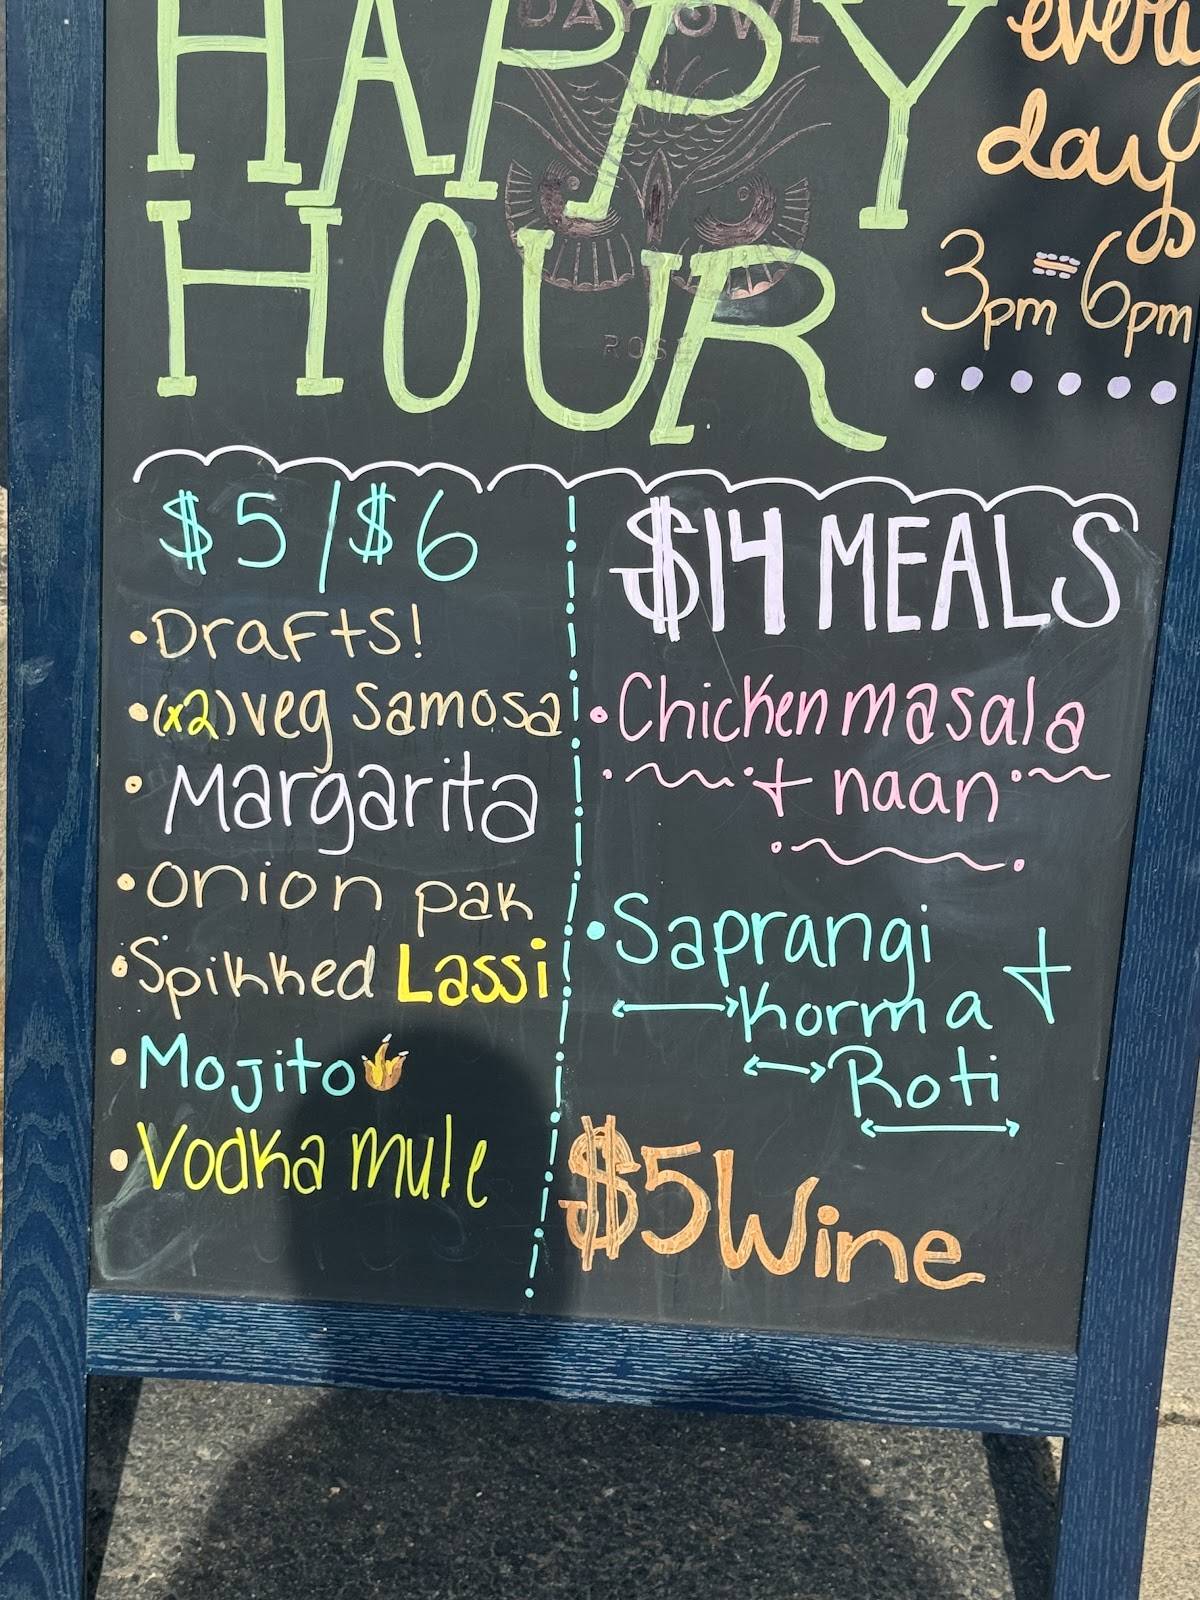 DAY OWL
ROSÉ
HAPPY
HOUR
every
day
3pm = 6pm
$5/$6
• Drafts!
• (x2) veg samosa
• Margarita
• onion pak
• Spikked Lassi
• Mojito
• Vodka mule
$14 MEALS
• Chicken masala
+ naan
• Saprangi
Korma +
Roti
$5 Wine